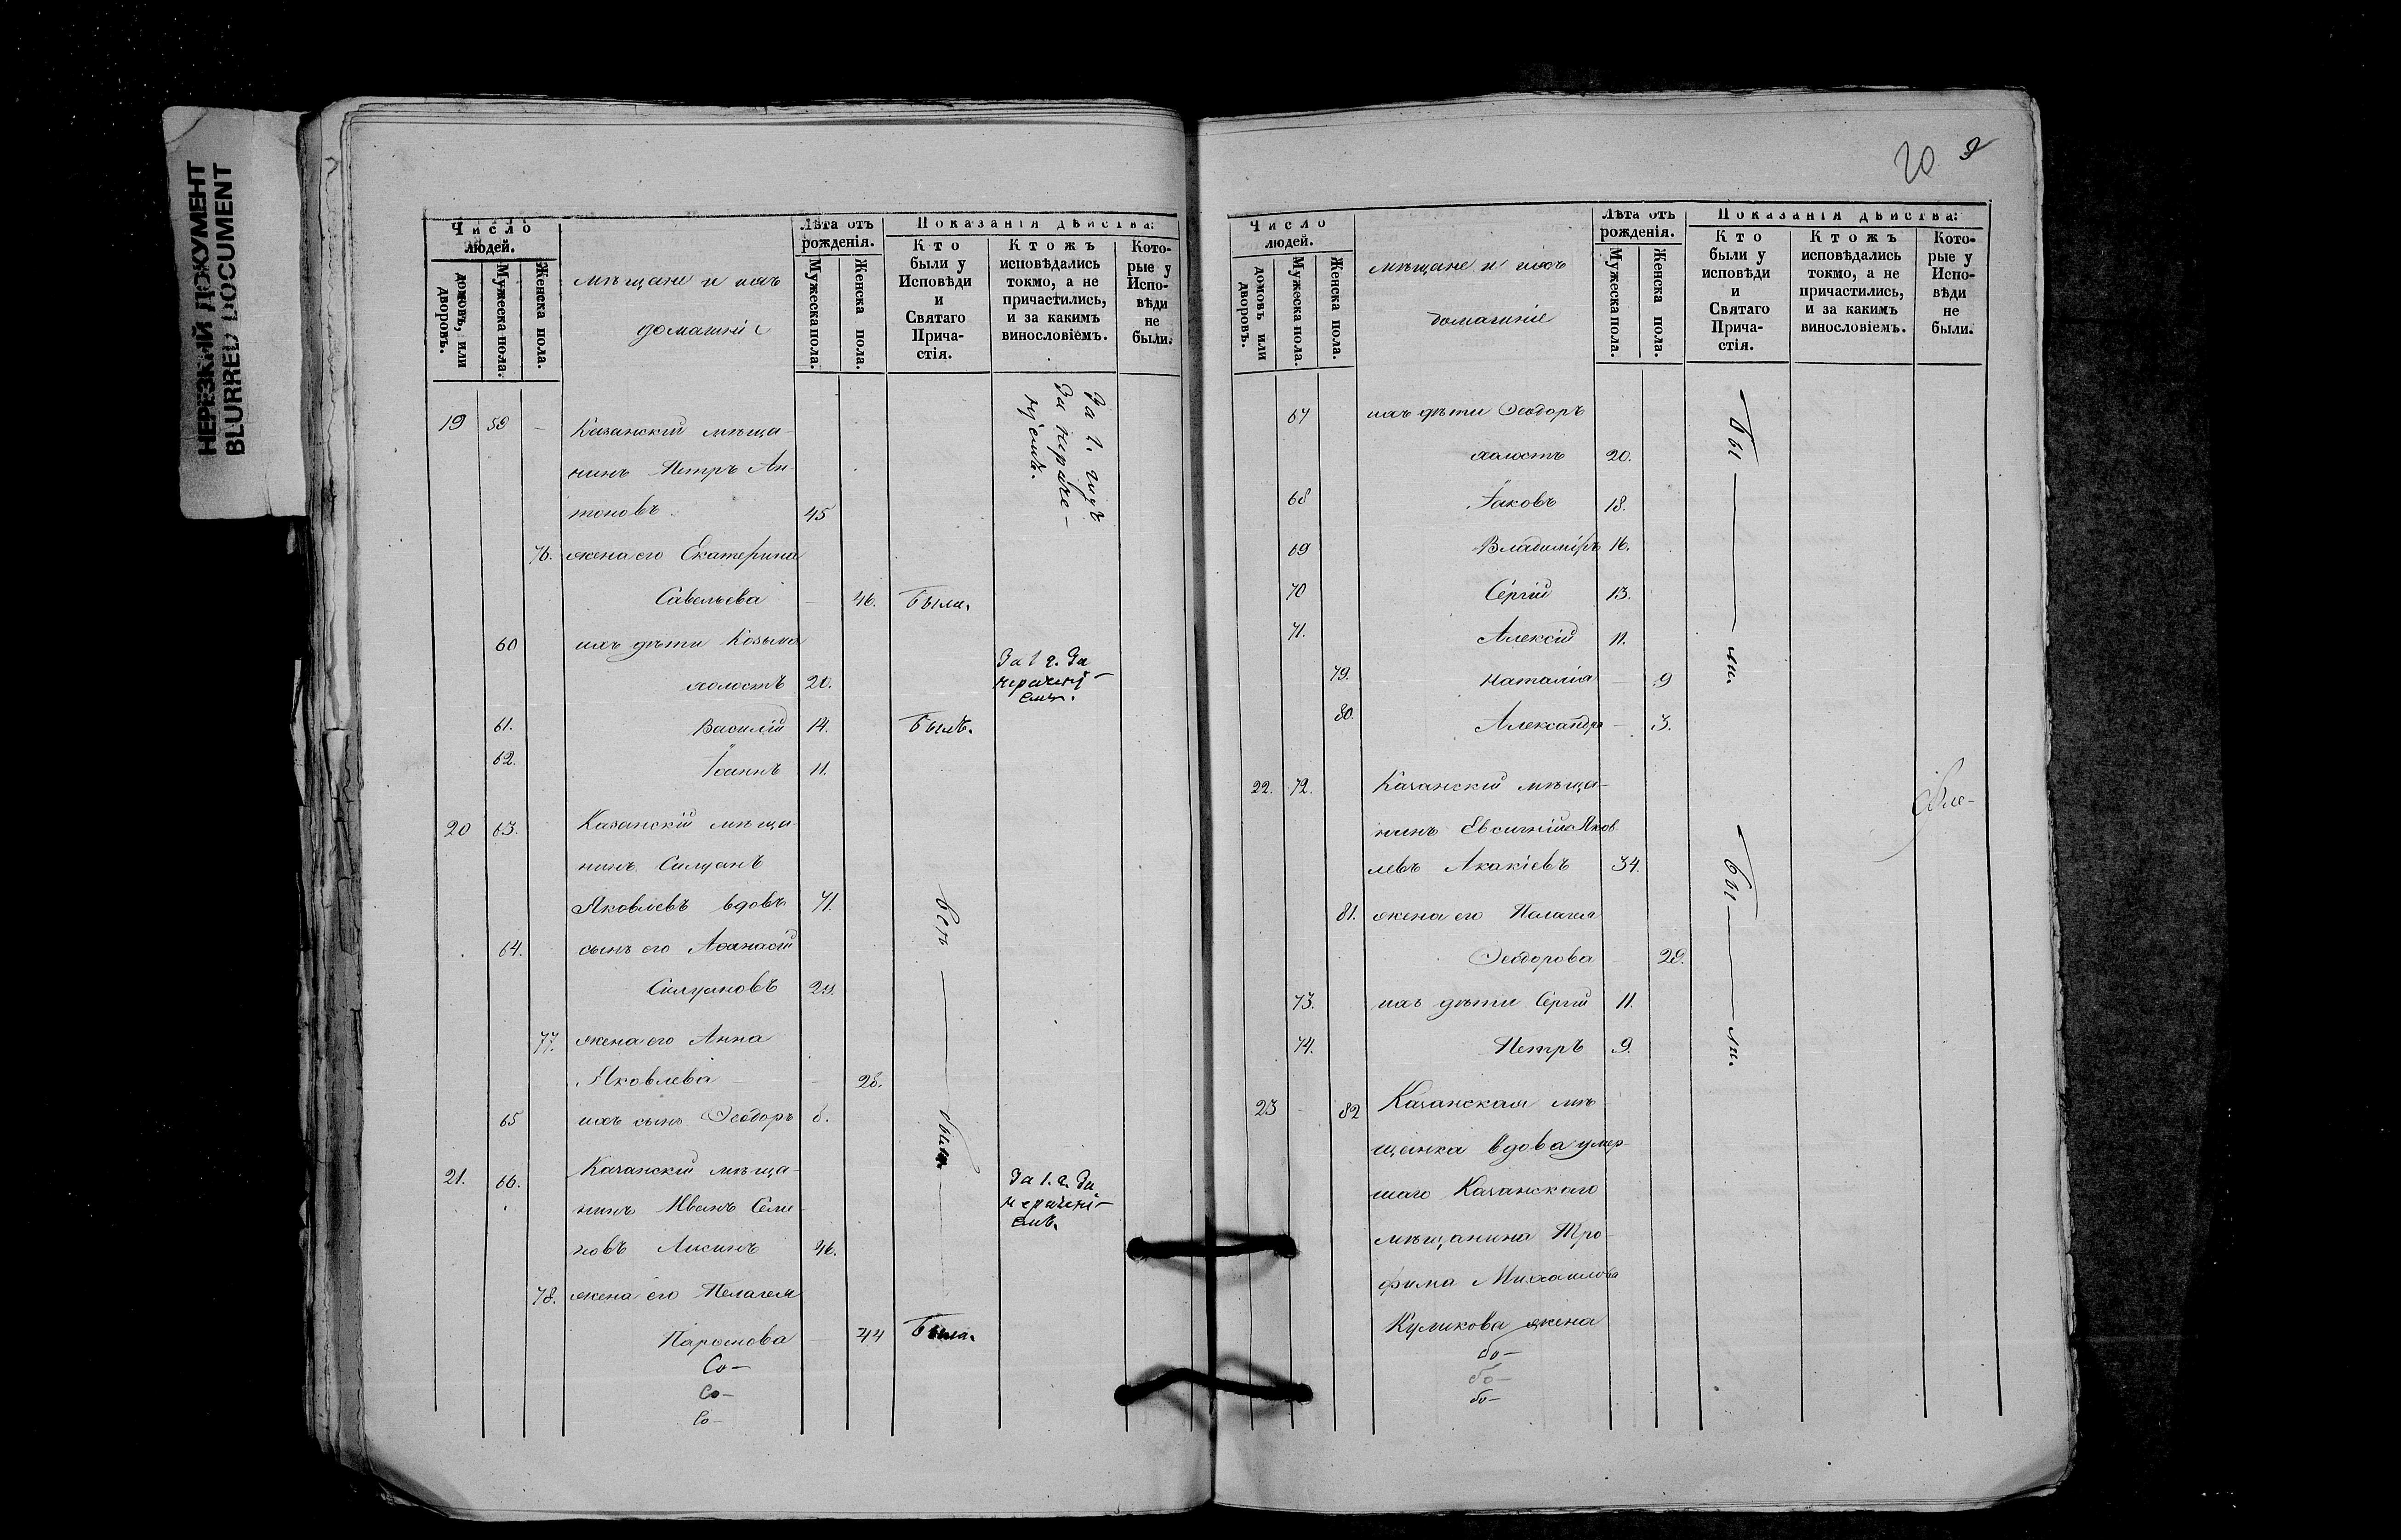 НЕРЕЗКИЙ ДОКУМЕНТ
BLURRED DOCUMENT
Число людей.
домовъ, или дворовъ.
Мужеска пола.
Женска пола.
мѣщане и ихъ
домашніе
Лѣта отъ рожденія.
Мужеска пола.
Женска пола.
Показанія дѣйства:
Кто были у Исповѣди и Святаго Причастія.
Ктожъ исповѣдались токмо, а не причастились, и за какимъ винословіемъ.
Которые у Исповѣди не были.
19 59 — Казанскій мѣща-
нинъ Петръ Ан-
тоновъ 45
За 1. годъ
За нераче-
ніемъ.
76. жена его Екатерина
Савельева — 46. Была.
60 ихъ дѣти Козьма
холостъ 20. За 1 г. За нерачені-емъ.
61. Василій 14. Былъ.
62. Іоаннъ 11.
20 63. Казанскій мѣща-
нинъ Силуанъ
Яковлевъ вдовъ 71.
64. сынъ его Аѳанасій
Силуановъ
77. жена его Анна
Яковлева — 28.
65 ихъ сынъ Ѳеодоръ 8.
Всѣ — были.
21. 66. Казанскій мѣща-
нинъ Иванъ Семе-
новъ Лисинъ 46.
За 1. г. За нерачені-емъ.
78. жена его Пелагея
— 44 Была.
Со-
Со-
Со-
20 9
Число людей.
домовъ или дворовъ.
Мужеска пола.
Женска пола.
мѣщане и ихъ
домашніе
Лѣта отъ рожденія.
Мужеска пола.
Женска пола.
Показанія дѣйства:
Кто были у исповѣди и Святаго Причастія.
Ктожъ исповѣдались токмо, а не причастились, и за какимъ винословіемъ.
Которые у Исповѣди не были.
67 ихъ дѣти Ѳеодоръ
холостъ 20.
68 Іаковъ 18.
69 Владиміръ 16.
70 Сергій 13.
71. Алексій 11.
79. Наталія — 9
80. Александра — 3.
Бы — ли.
22. 72. Казанскій мѣща-
нинъ Евсигній Яков
левъ Акакіевъ 34.
81. жена его Пелагея
Ѳеодорова — 29.
73. ихъ дѣти Сергій 11.
74. Петръ 9.
Бы — ли.
23 — 82 Казанская мѣ-
щанка вдова умер-
шаго Казанскаго
мѣщанина Тро-
фима Михаилова
Куликова жена
бо-
бо-
бо-